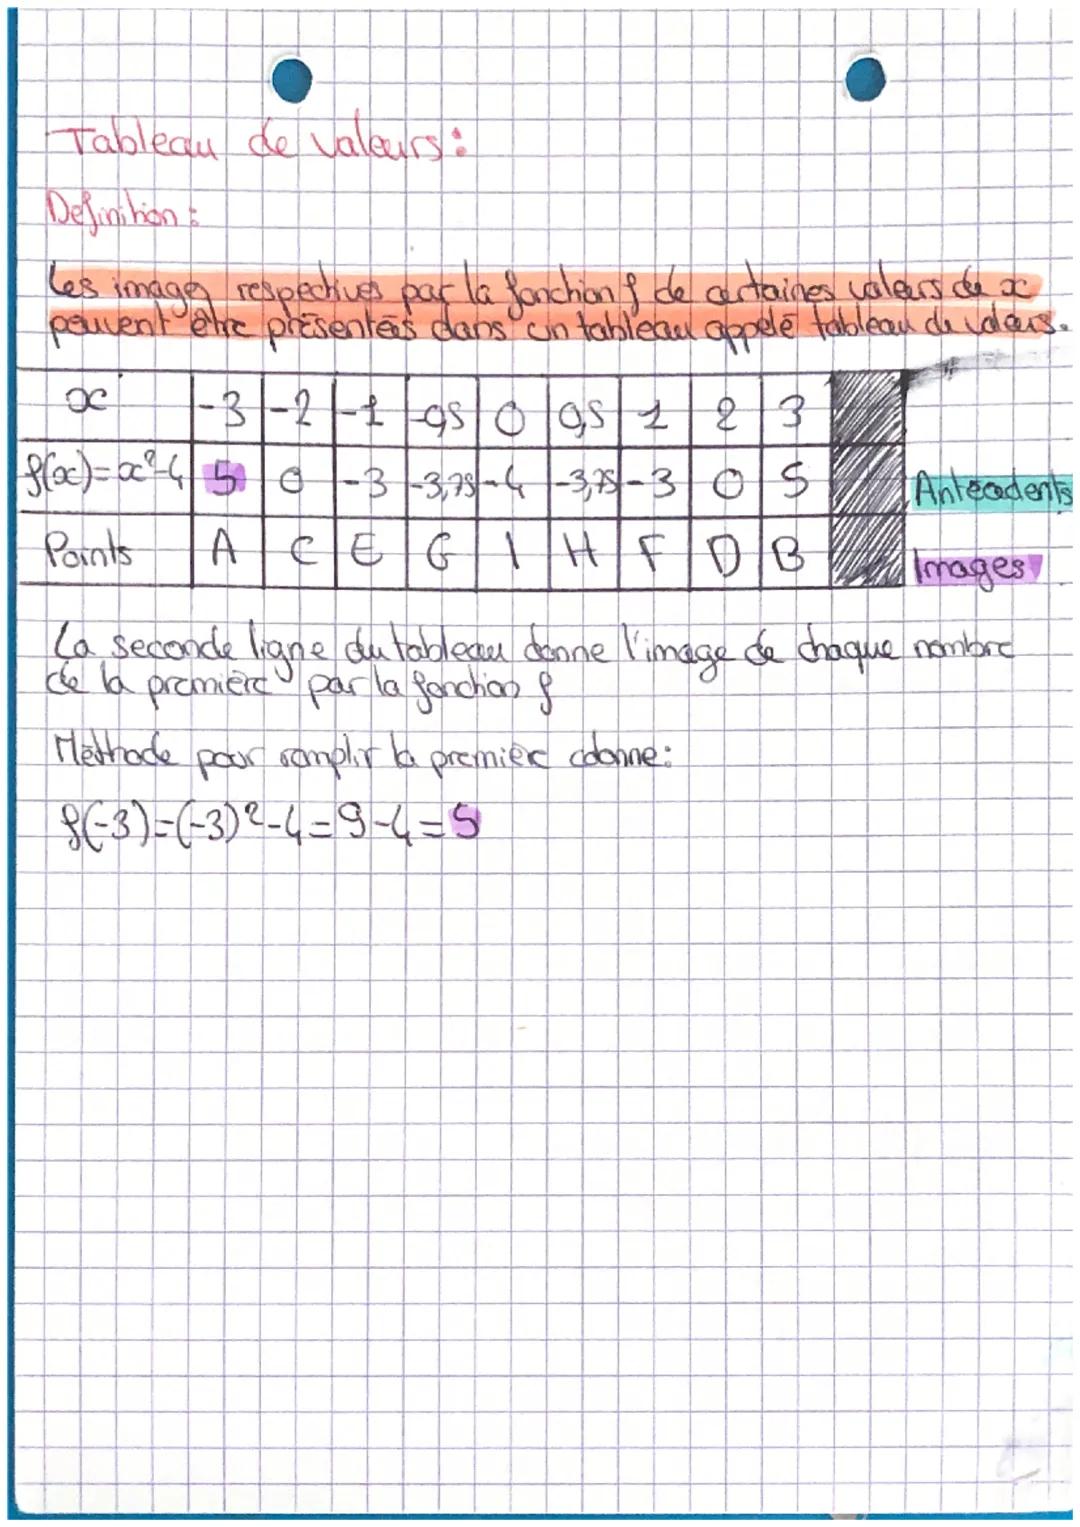 Tableau de valeurs:
Definition:
Les images respectives par la fonction f de certaines valeurs de x
peuvent être présentées dans un tableau appelé tableau de valeurs.
x -3 -2 -1 -0,5 0 0,5 1 2 3
f(x)=x²-4 5 0 -3 -3,75 -4 -3,75 -3 0 5 Antécédents
Points A C E G I H F D B Images
La seconde ligne du tableau donne l'image de chaque nombre
de la première par la fonction f
Méthode pour remplir la première colonne:
f(-3)=(-3)²-4=9-4=5